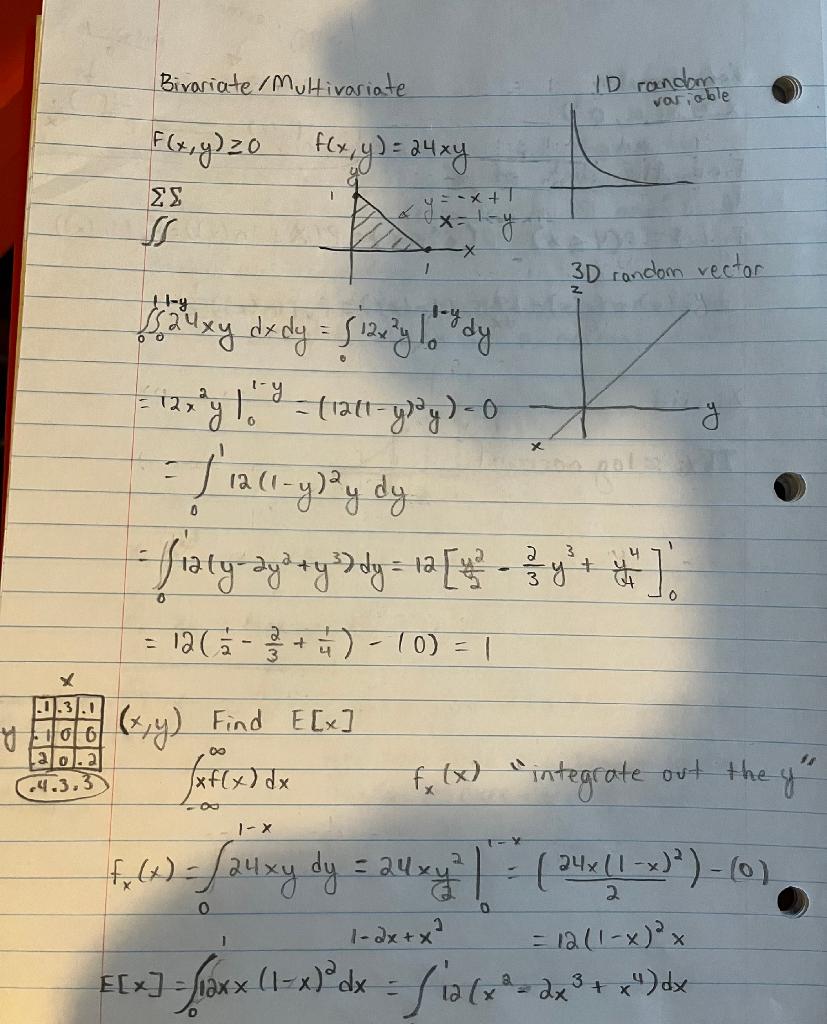 Bivariate/Multivariate
1D random variable
F(x,y)≥0 f(x,y) = 24xy
ΣΣ
∫∫
y
1
y = -x + 1
x = 1 - y
x
1
3D random vector
z
y
x
∫₀¹∫₀^{1-y} 24xy dx dy = ∫₀¹ 12x²y |₀^{1-y} dy
= 12x²y |₀^{1-y} = (12(1-y)²y) - 0
= ∫₀¹ 12(1-y)²y dy
= ∫₀¹ 12(y-2y²+y³)dy = 12[y²/2 - 2/3 y³ + y⁴/4]₀¹
= 12(1/2 - 2/3 + 1/4) - (0) = 1
x
y
.1 .3 .1
.1 0 0
.2 0 .2
.4 .3 .3
(x,y) Find E[x]
∫_{-∞}^{∞} xf(x) dx fₓ(x) "integrate out the y"
fₓ(x) = ∫₀^{1-x} 24xy dy = 24x y²/2 |₀^{1-x} = (24x(1-x)²/2) - (0)
1-2x+x² = 12(1-x)²x
E[x] = ∫₀¹ 12xx(1-x)² dx = ∫¹ 12(x² - 2x³ + x⁴)dx